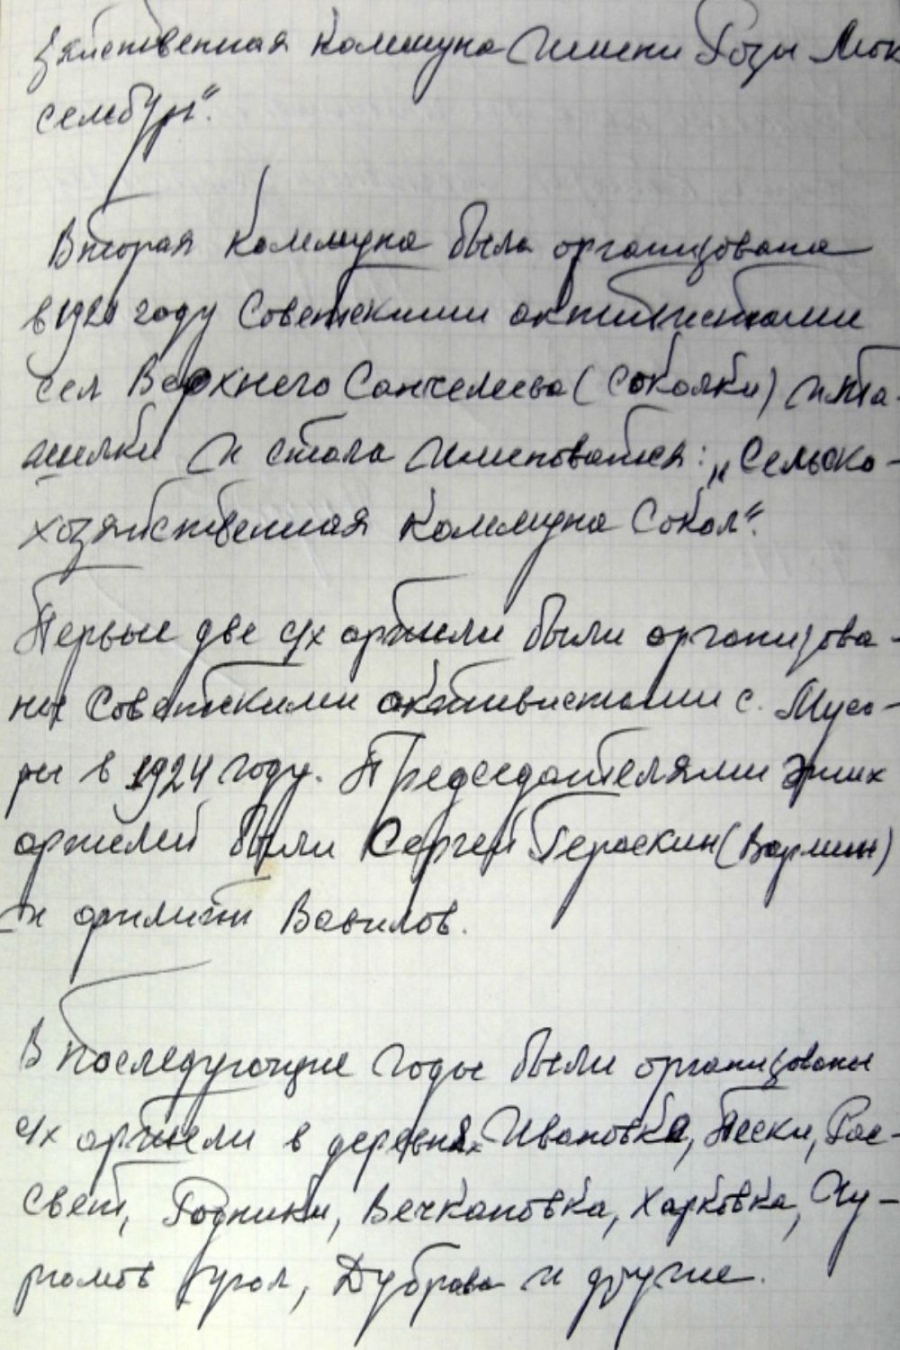 зяйственная коммуна имени Розы Люк
сембург".
Вторая коммуна была организована
в 1921 году Советскими активистами
сел Верхнего Санчелеева (Соколки) и Та-
шелки и стала именоватся: „Сельско-
хозяйственная коммуна Сокол".
Первые две с/х артели были организова-
ны Советскими активистами с. Мусо-
ры в 1924 году. Председателями этих
артелей были Сергей Гераскин (Вармин)
и Филипп Вавилов.
В последующие годы были организованы
с/х артели в деревнях Ивановка, Пески, Рас-
свет, Родники, Вечкановка, Харковка,
угол, Дуброва и другие.